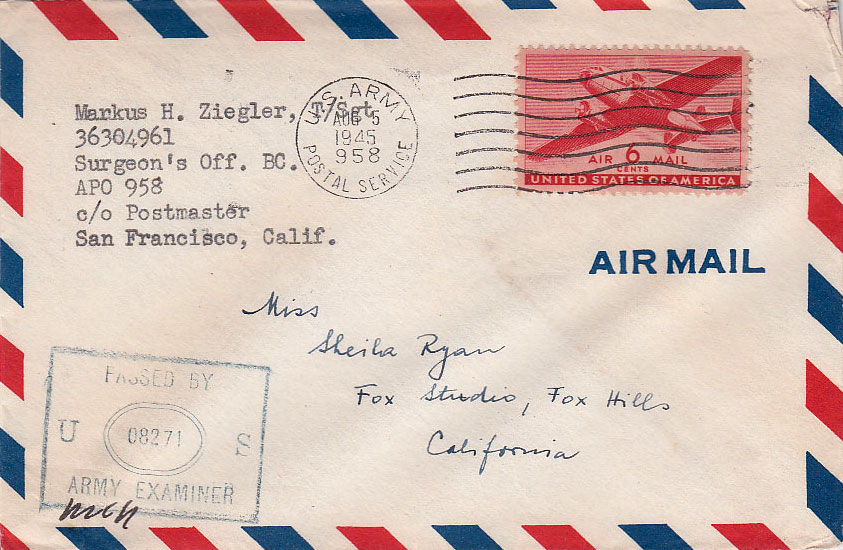 Markus H. Ziegler, T/Sgt.
36304961
Surgeon's Off. BC.
APO 958
c/o Postmaster
San Francisco, Calif.
U.S. ARMY
AUG 5
1945
958
POSTAL SERVICE
AIR 6 MAIL
CENTS
UNITED STATES OF AMERICA
AIR MAIL
Miss
Sheila Ryan
Fox Studio, Fox Hills
California
PASSED BY
U 08271 S
ARMY EXAMINER